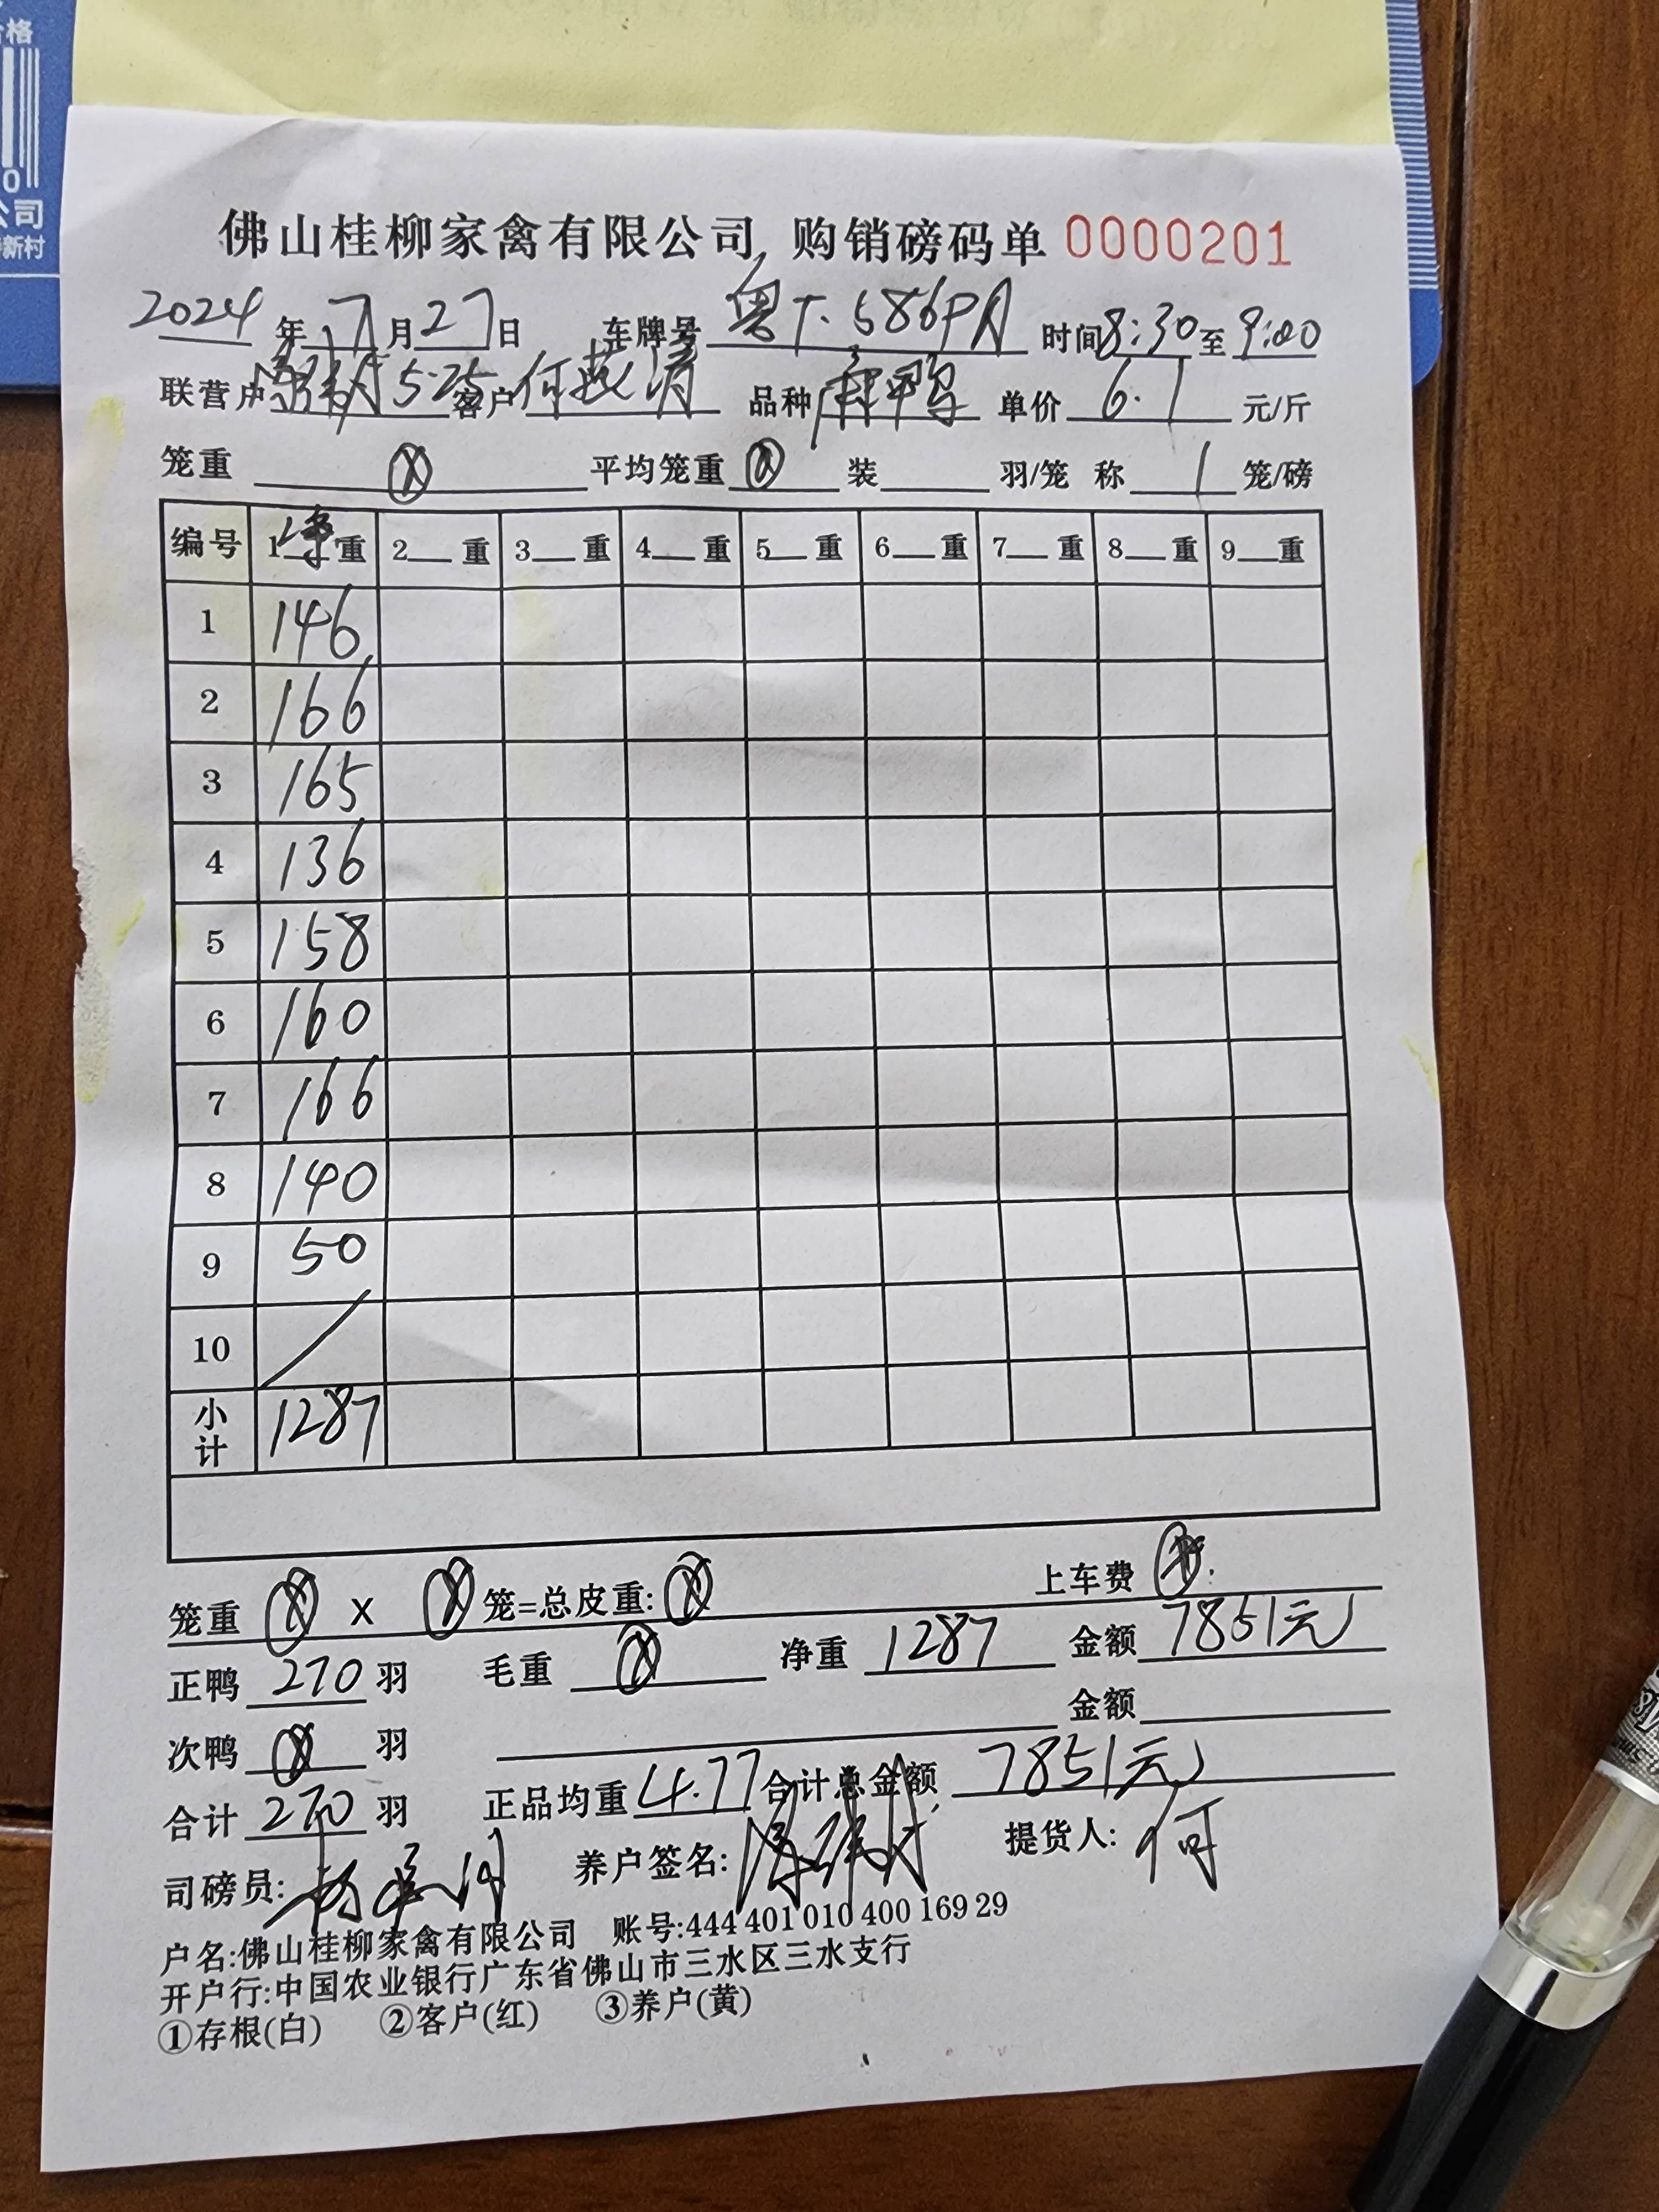 格
0
公司
新村
佛山桂柳家禽有限公司 购销磅码单 0000201
2024 年 7 月 27 日 车牌号 粤T·586PA 时间 8:30 至 9:00
联营户 5.25 客户 何燕清 品种 单价 6.1 元/斤
笼重 平均笼重 装 羽/笼 称 1 笼/磅
编号 1净重 2 重 3 重 4 重 5 重 6 重 7 重 8 重 9 重
1 146
2 166
3 165
4 136
5 158
6 160
7 166
8 140
9 50
10 /
小计 1287
笼重 X 笼=总皮重: 上车费
正鸭 270 羽 毛重 净重 1287 金额 7851元
次鸭 羽 金额
合计 270 羽 正品均重 4.77 合计总金额 7851元
司磅员: 养户签名: 提货人: 何
户名:佛山桂柳家禽有限公司 账号:444 401 010 400 169 29
开户行:中国农业银行广东省佛山市三水区三水支行
①存根(白) ②客户(红) ③养户(黄)